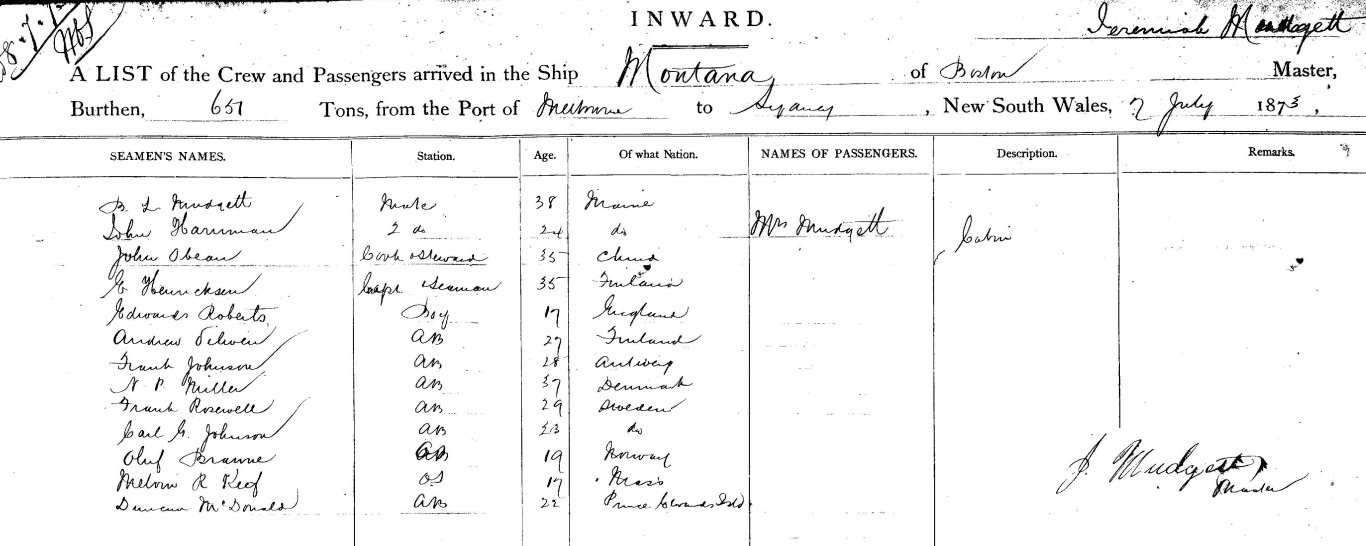 INWARD.
Jeremiah Mudgett
A LIST of the Crew and Passengers arrived in the Ship Montana of Boston Master,
Burthen, 651 Tons, from the Port of Melbourne to Sydney, New South Wales, 7 July 1873,
SEAMEN'S NAMES. Station. Age. Of what Nation. NAMES OF PASSENGERS. Description. Remarks.
B L Mudgett Mate 38 Maine
John Harriman 2 do 24 do Mrs Mudgett Cabin
John Obean Cook & Steward 35 China
E Henricksen Seaman 35 Finland
Edwards Roberts Boy 17 England
Andrew AB 27 Finland
Frank Johnson AB 28 Antwerp
N P Miller AB 37 Denmark
Frank Rosewell AB 29 Sweden
Carl G. Johnson AB 23 do
Oluf Braune AB 19 Norway
Melvin R Keef OS 17 Mass
Duncan McDonald AB 22 Prince Edwards Isld
J. Mudgett
Master